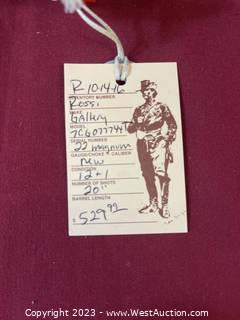 R-10-14-16
INVENTORY NUMBER
Rossi
MAKE
Gallery
MODEL
SERIAL NUMBER
22 magnum
GAUGE/CHOKE CALIBER
New
CONDITION
12+1
NUMBER OF SHOTS
20"
BARREL LENGTH
$529.92
Copyright © 2023 - www.WestAuction.com